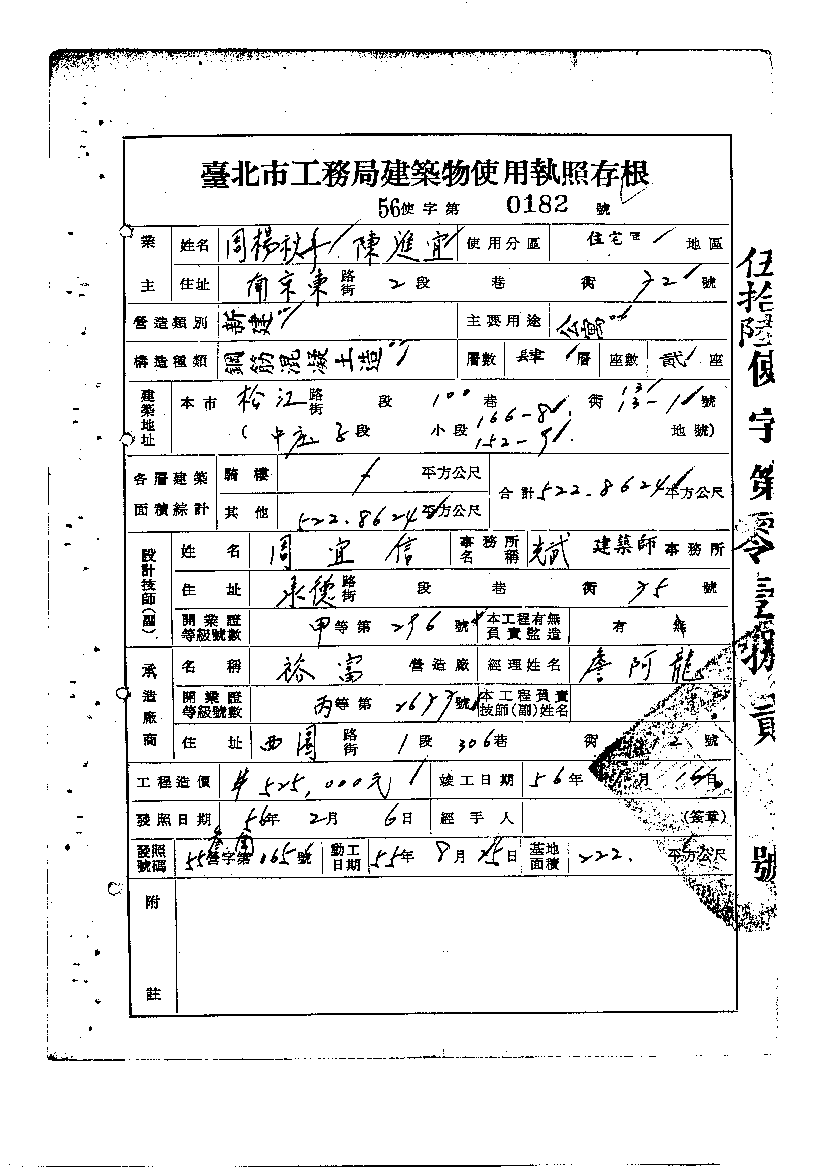 臺北市工務局建築物使用執照存根
56使字第 0182 號
業主 姓名 周楊秋 陳進宜 使用分區 住宅區 地區
住址 南京東 路街 2 段 巷 衖 號
營造類別 新建 主要用途 公寓
構造種類 鋼筋混凝土造 層數 肆 層 座數 貳 座
建築地址 本市 松江 路街 段 100 巷 衖 13-1 號
(中庄子段 小段 166-8 152-9 地號)
各層建築面積綜計 騎樓 平方公尺 合計 522.8624 平方公尺
其他 522.8624 平方公尺
設計技師(副) 姓名 周宜信 事務所名稱 光武 建築師 事務所
住址 承德 路街 段 巷 衖 35 號
開業證等級號數 甲等第 296 號 本工程有無負責監造 有 無
承造廠商 名稱 裕富 營造廠 經理姓名 詹阿龍
開業證等級號數 丙等第 號 本工程負責技師(副)姓名
住址 西園 路街 1 段 306 巷 衖 12 號
工程造價 525,000元 竣工日期 56年 月 16日
發照日期 56年 2月 6日 經手人 (簽章)
發照號碼 55營字第 號 動工日期 55年 8月 25日 基地面積 222. 平方公尺
附註
伍拾陸使字第零壹捌貳號